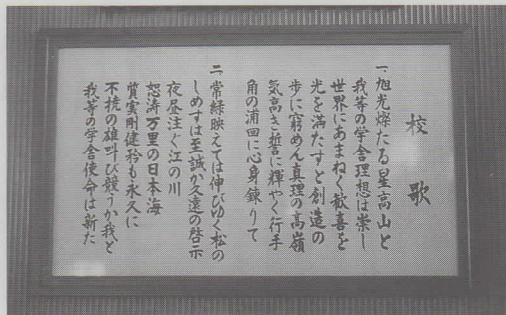 校歌
一、旭光燦たる星高山と
我等の学舎理想は崇し
世界にあまねく歓喜を
光を満たすと創造の
歩に窮めん真理の高嶺
気高き誓に輝やく行手
角の浦回に心身錬りて
二、常緑映えては伸びゆく松の
しめすは至誠か久遠の啓示
夜昼注ぐ江の川
怒涛万里の日本海
質実剛健矜も永久に
不撓の雄叫び競うか我と
我等の学舎使命は新た